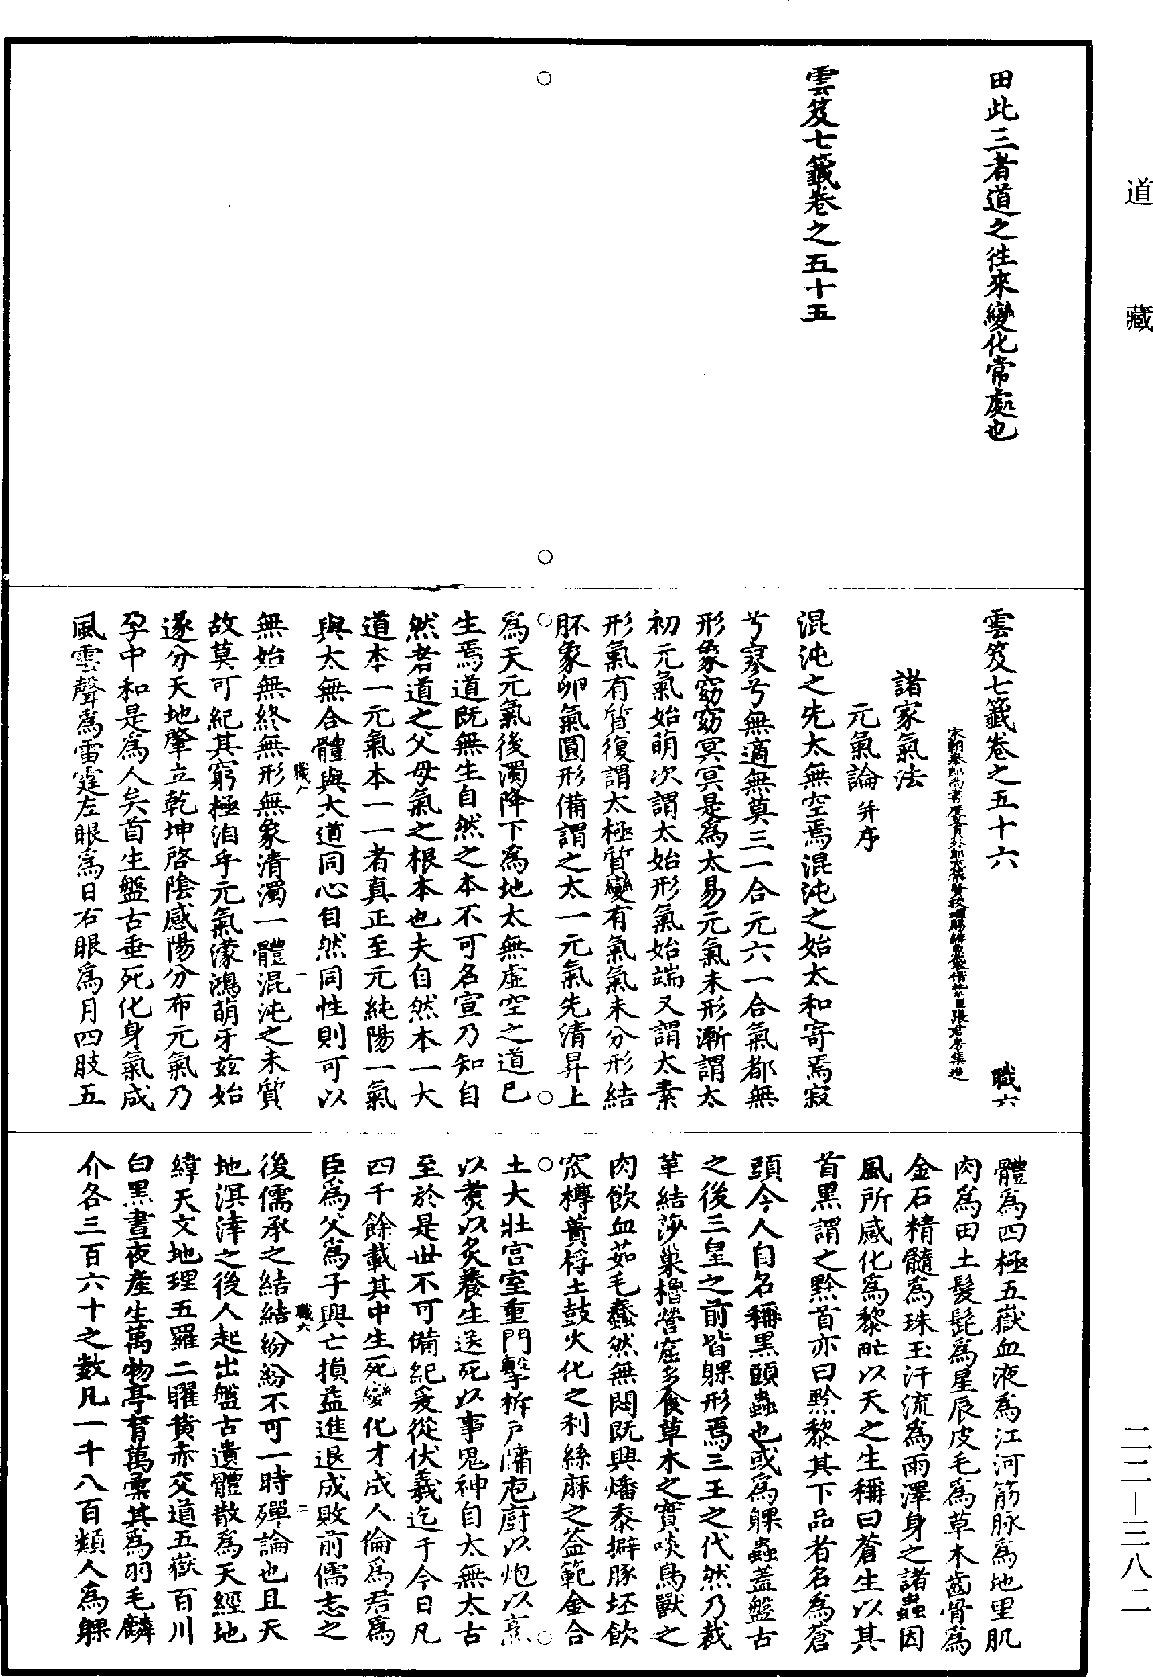 道藏
田此三者道之往來變化常處也
雲笈七籤卷之五十五
雲笈七籤卷之五十六 職六
諸家氣法
元氣論并序
混沌之先太無空焉混沌之始太和寄焉寂
兮寥兮無適無莫三一合元六一合氣都無
形象窈窈冥冥是為太易元氣未形漸謂太
初元氣始萌次謂太始形氣始端又謂太素
形氣有質復謂太極質變有氣氣未分形結
胚象卵氣圓形備謂之太一元氣先清昇上
為天元氣後濁降下為地太無虛空之道已
生焉道既無生自然之本不可名宣乃知自
然者道之父母氣之根本也夫自然本一大
道本一元氣本一一者真正至元純陽一氣
與太無合體與大道同心自然同性則可以
職六 一
無始無終無形無象清濁一體混沌之未質
故莫可紀其窮極洎乎元氣濛鴻萌牙茲始
遂分天地肇立乾坤啓陰感陽分布元氣乃
孕中和是為人矣首生盤古垂死化身氣成
風雲聲為雷霆左眼為日右眼為月四肢五
體為四極五嶽血液為江河筋脉為地里肌
肉為田土髮髭為星辰皮毛為草木齒骨為
金石精髓為珠玉汗流為雨澤身之諸蟲因
風所感化為黎甿以天之生稱曰蒼生以其
首黑謂之黔首亦曰黔黎其下品者名為蒼
頭今人自名稱黑頭蟲也或為躶蟲蓋盤古
之後三皇之前皆躶形焉三王之代然乃裁
革結莎巢櫓營窟多食草木之實啖鳥獸之
肉飲血茹毛蠢然無悶既興燔黍擗豚坯飲
窊樽蕢桴土鼓火化之利絲麻之益範金合
土大壯宮室重門擊柝戶牖庖廚以炮以烹
以煑以炙養生送死以事鬼神自太無太古
至於是世不可備紀爰從伏羲迄于今日凡
四千餘載其中生死變化才成人倫為君為
臣為父為子興亡損益進退成敗前儒志之
職六 二
後儒承之結結紛紛不可一時殫論也且天
地溟涬之後人起出盤古遺體散為天經地
緯天文地理五羅二曜黃赤交道五嶽百川
白黑晝夜產生萬物亭育萬彙其為羽毛麟
介各三百六十之數凡一千八百類人為躶
二二—三八二